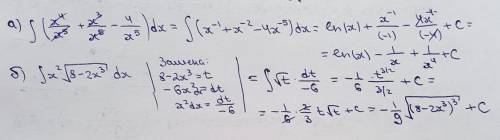 а) ∫(x⁴/x⁵ + x³/x⁵ − 4/x⁵)dx = ∫(x⁻¹ + x⁻² − 4x⁻⁵)dx = ln(x) + x⁻¹/(-1) − 4x⁻⁴/(-4) + C =
= ln(x) − 1/x + 1/x⁴ + C
б) ∫x²√(8-2x³) dx
Замена:
8-2x³ = t
-6x² = dt
x²dx = dt/-6
= ∫√t · dt/-6 = -1/6 · t^(3/2)/(3/2) + C =
= -1/6 · 2/3 t√t + C = -1/9 √(8-2x³)³ + C